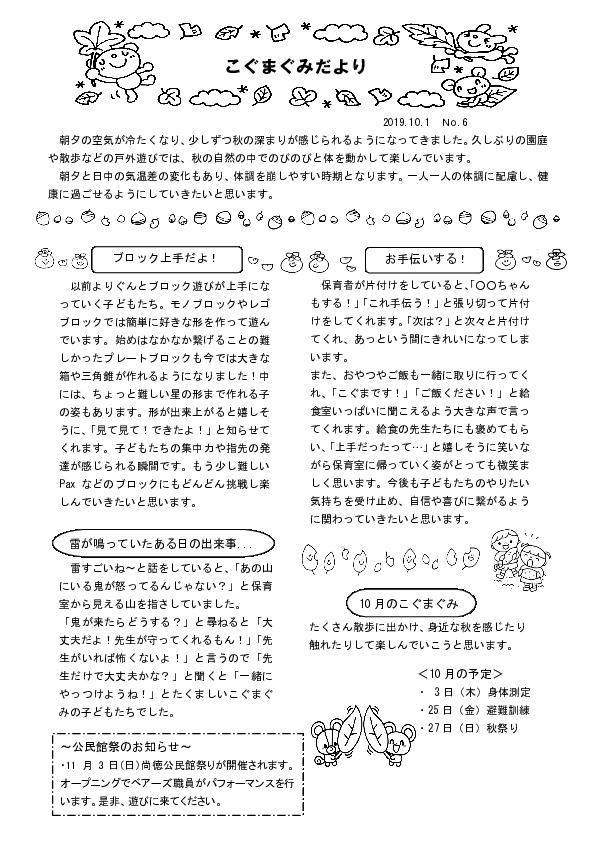 こぐまぐみだより
2019.10.1　No.6
朝夕の空気が冷たくなり、少しずつ秋の深まりが感じられるようになってきました。久しぶりの園庭
や散歩などの戸外遊びでは、秋の自然の中でのびのびと体を動かして楽しんでいます。
朝夕と日中の気温差の変化もあり、体調を崩しやすい時期となります。一人一人の体調に配慮し、健
康に過ごせるようにしていきたいと思います。
ブロック上手だよ！
以前よりぐんとブロック遊びが上手にな
っていく子どもたち。モノブロックやレゴ
ブロックでは簡単に好きな形を作って遊ん
でいます。始めはなかなか繋げることの難
しかったプレートブロックも今では大きな
箱や三角錐が作れるようになりました！中
には、ちょっと難しい星の形まで作れる子
の姿もあります。形が出来上がると嬉しそ
うに、「見て見て！できたよ！」と知らせて
くれます。子どもたちの集中力や指先の発
達が感じられる瞬間です。もう少し難しい
Pax などのブロックにもどんどん挑戦し楽
しんでいきたいと思います。
雷が鳴っていたある日の出来事...
雷すごいね～と話をしていると、「あの山
にいる鬼が怒ってるんじゃない？」と保育
室から見える山を指さしていました。
「鬼が来たらどうする？」と尋ねると「大
丈夫だよ！先生が守ってくれるもん！」「先
生がいれば怖くないよ！」と言うので「先
生だけで大丈夫かな？」と聞くと「一緒に
やっつけようね！」とたくましいこぐまぐ
みの子どもたちでした。
～公民館祭のお知らせ～
・11 月 3 日(日)尚徳公民館祭りが開催されます。
オープニングでベアーズ職員がパフォーマンスを行
います。是非、遊びに来てください。
お手伝いする！
保育者が片付けをしていると、「〇〇ちゃん
もする！」「これ手伝う！」と張り切って片付
けをしてくれます。「次は？」と次々と片付け
てくれ、あっという間にきれいになってしま
います。
また、おやつやご飯も一緒に取りに行ってく
れ、「こぐまです！」「ご飯ください！」と給
食室いっぱいに聞こえるよう大きな声で言っ
てくれます。給食の先生たちにも褒めてもら
い、「上手だったって…」と嬉しそうに笑いな
がら保育室に帰っていく姿がとっても微笑ま
しく思います。今後も子どもたちのやりたい
気持ちを受け止め、自信や喜びに繋がるよう
に関わっていきたいと思います。
10 月のこぐまぐみ
たくさん散歩に出かけ、身近な秋を感じたり
触れたりして楽しんでいこうと思います。
＜10 月の予定＞
・ 3 日（木）身体測定
・25 日（金）避難訓練
・27 日（日）秋祭り